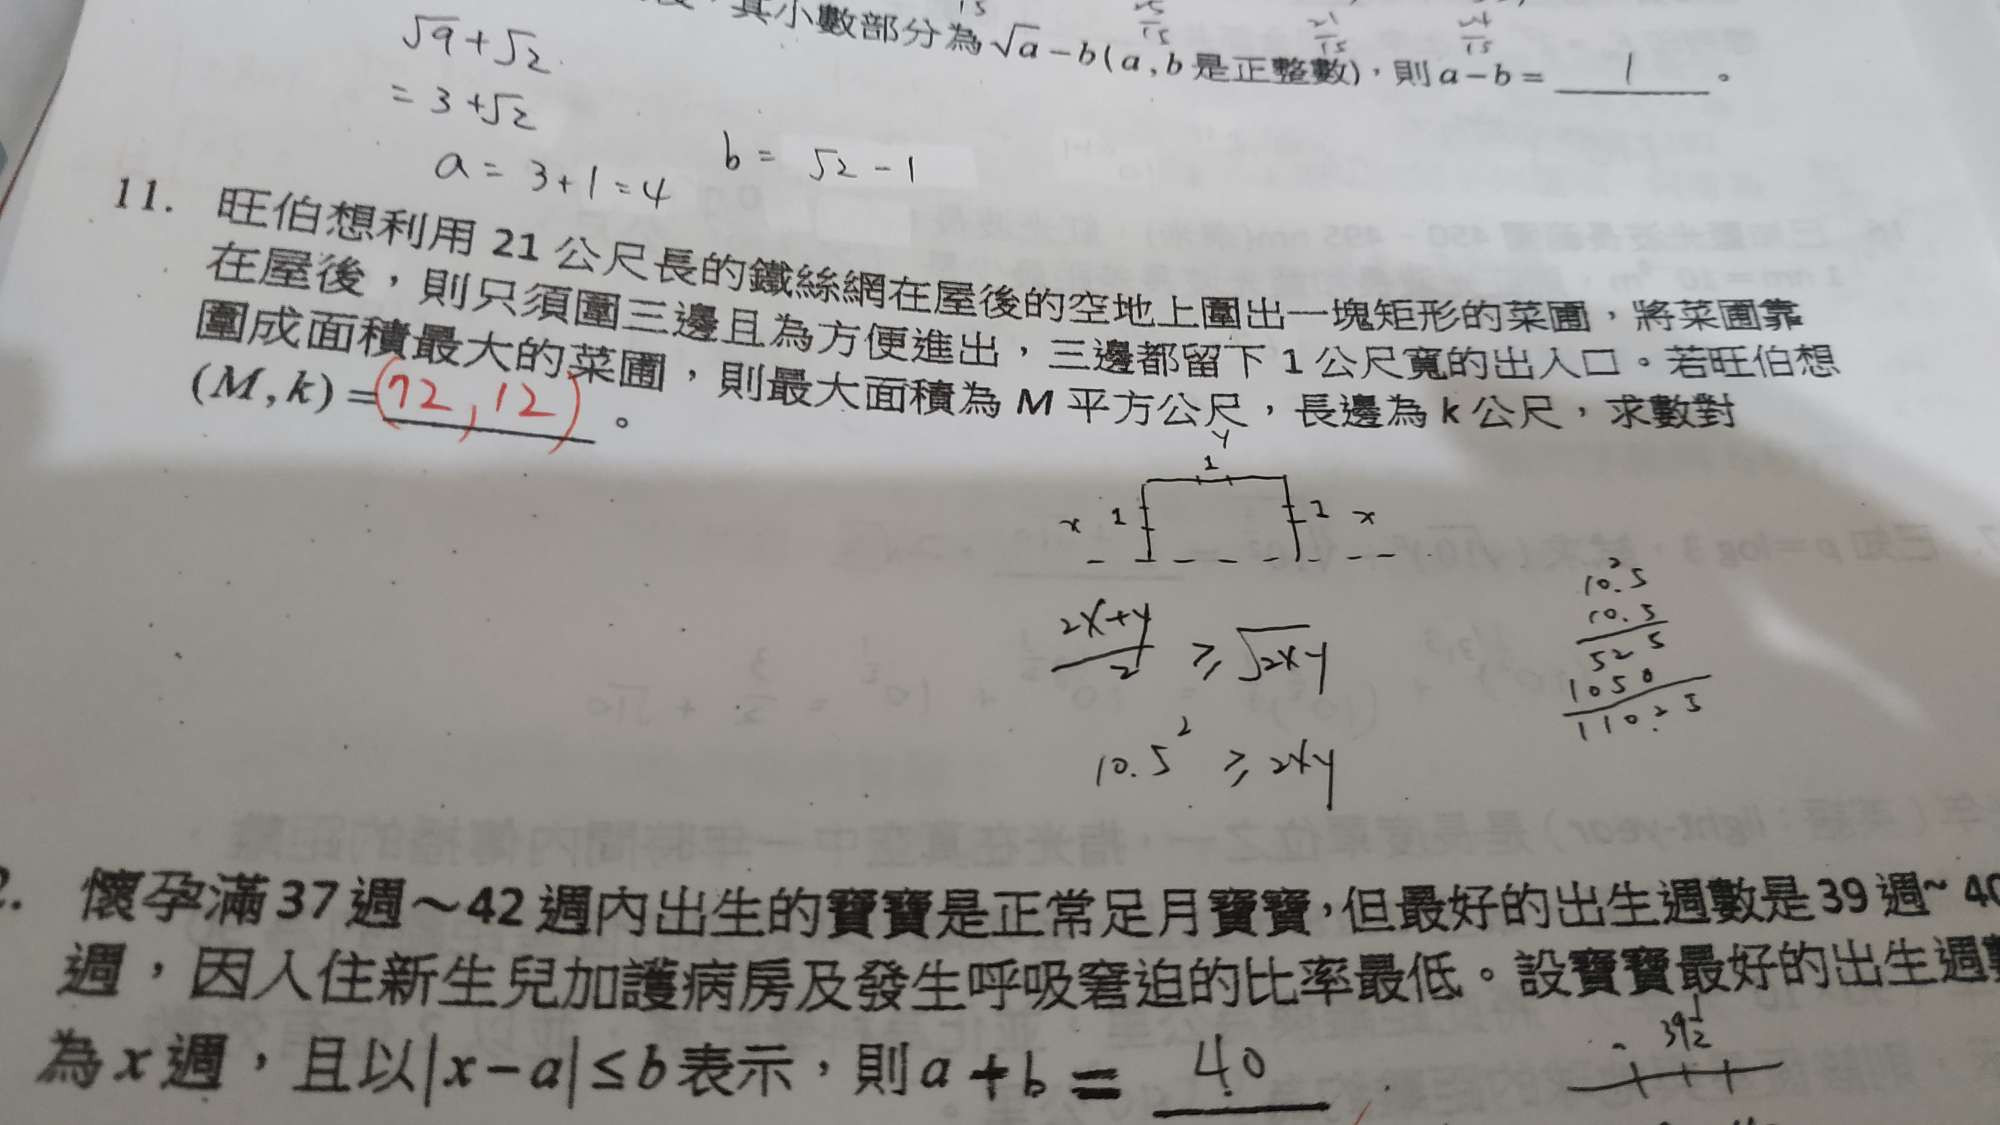 其小數部分為√a−b(a,b是正整數),則a−b= 1 。
√9+√2
=3+√2
a=3+1=4
b=√2−1
11. 旺伯想利用 21 公尺長的鐵絲網在屋後的空地上圍出一塊矩形的菜圃,將菜圃靠
在屋後,則只須圍三邊且為方便進出,三邊都留下 1 公尺寬的出入口。若旺伯想
圍成面積最大的菜圃,則最大面積為 M 平方公尺,長邊為 k 公尺,求數對
(M,k)=(72,12)。
y
1
x 1
1 x
(2x+y)/2 ≥ √2xy
10.5² ≥ 2xy
10.5
10.5
525
1050
110.25
2. 懷孕滿37週~42週內出生的寶寶是正常足月寶寶,但最好的出生週數是39週~40
週,因入住新生兒加護病房及發生呼吸窘迫的比率最低。設寶寶最好的出生週數
為x週,且以|x−a|≤b表示,則a+b= 40
39½